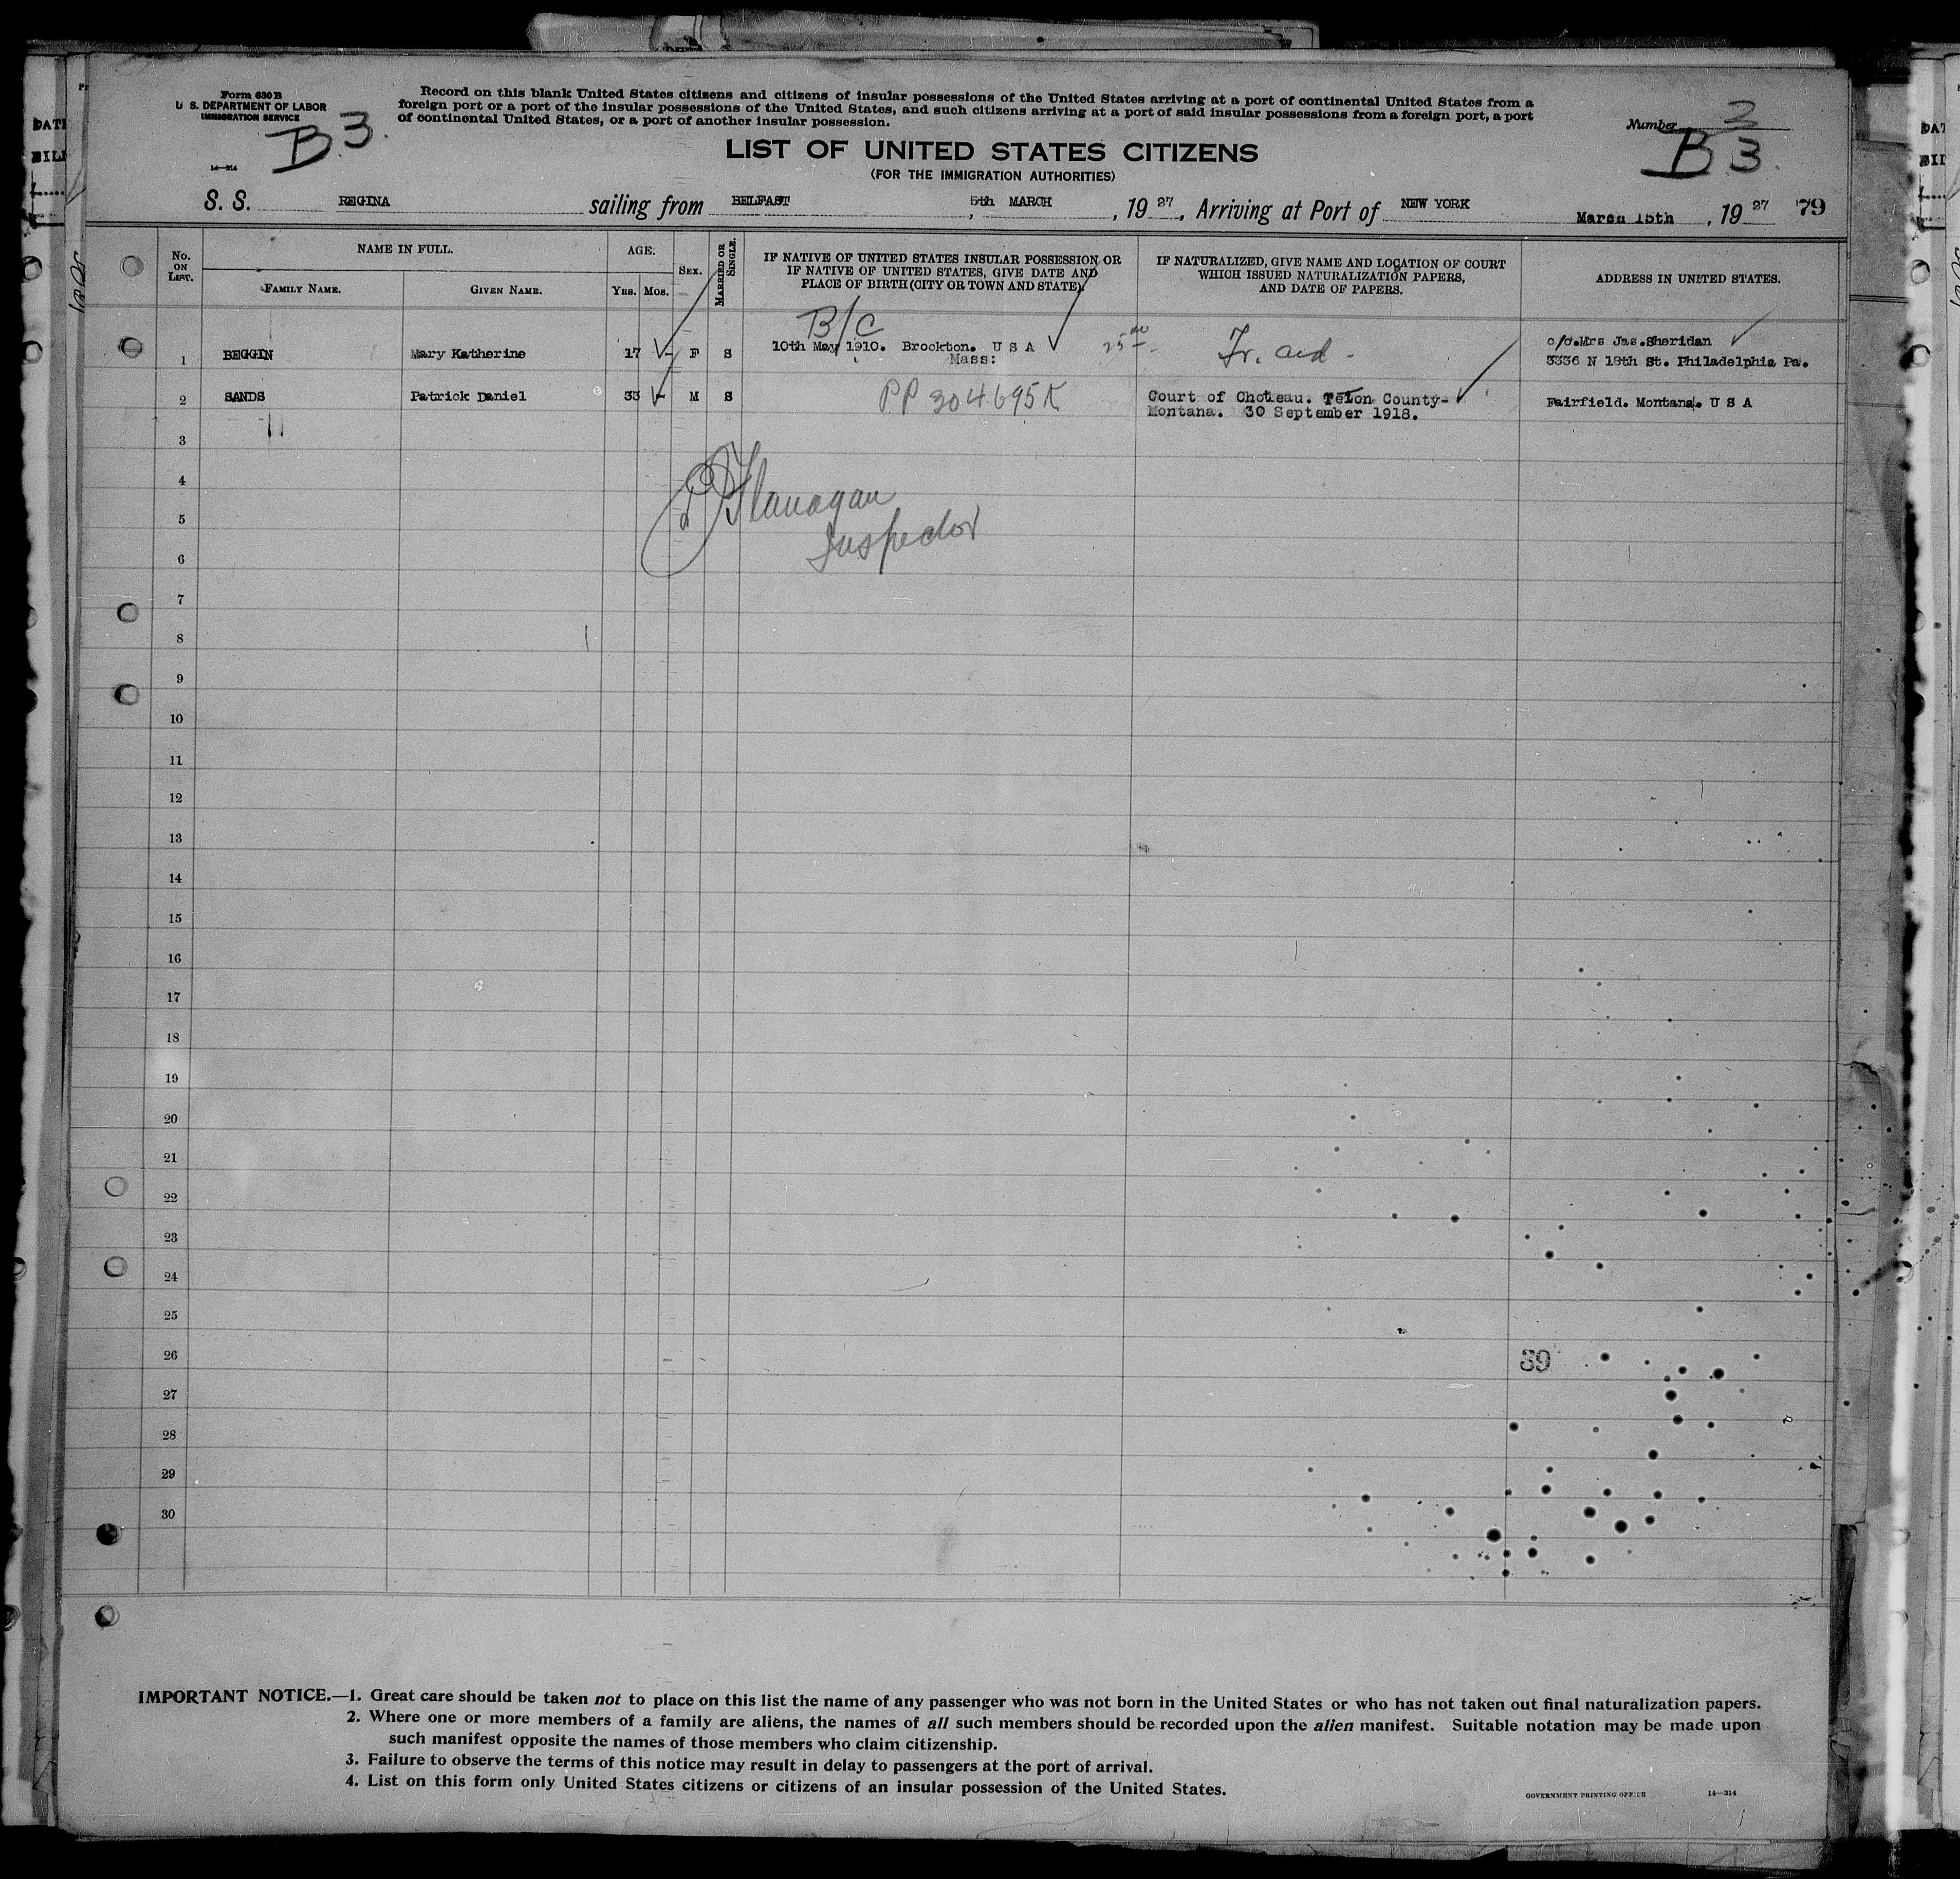 Form 630 B
U. S. DEPARTMENT OF LABOR
IMMIGRATION SERVICE
B 3.
14—214
Record on this blank United States citizens and citizens of insular possessions of the United States arriving at a port of continental United States from a
foreign port or a port of the insular possessions of the United States, and such citizens arriving at a port of said insular possessions from a foreign port, a port
of continental United States, or a port of another insular possession.
Number 2
B 3.
LIST OF UNITED STATES CITIZENS
(FOR THE IMMIGRATION AUTHORITIES)
S. S. REGINA sailing from BELFAST, 5th MARCH, 19 27, Arriving at Port of NEW YORK March 15th, 19 27 79
No. ON LIST.
NAME IN FULL.
FAMILY NAME. GIVEN NAME.
AGE.
YRS. MOS.
SEX.
MARRIED OR SINGLE.
IF NATIVE OF UNITED STATES INSULAR POSSESSION OR
IF NATIVE OF UNITED STATES, GIVE DATE AND
PLACE OF BIRTH (CITY OR TOWN AND STATE).
IF NATURALIZED, GIVE NAME AND LOCATION OF COURT
WHICH ISSUED NATURALIZATION PAPERS,
AND DATE OF PAPERS.
ADDRESS IN UNITED STATES.
B/C
1 BEGGIN Mary Katherine 17 - F S 10th May 1910. Brockton. U S A 25 c/o.Mrs Jas.Sheridan
Mass: 3336 N 18th St. Philadelphia Pa.
2 SANDS Patrick Daniel 33 - M S PP 304695K Court of Choteau. Teton County- Fairfield. Montana. U S A
Montana. 30 September 1918.
3
4
Flanagan
5
Inspector
6
7
8
9
10
11
12
13
14
15
16
17
18
19
20
21
22
23
24
25
26 39
27
28
29
30
IMPORTANT NOTICE.—1. Great care should be taken not to place on this list the name of any passenger who was not born in the United States or who has not taken out final naturalization papers.
2. Where one or more members of a family are aliens, the names of all such members should be recorded upon the alien manifest. Suitable notation may be made upon
such manifest opposite the names of those members who claim citizenship.
3. Failure to observe the terms of this notice may result in delay to passengers at the port of arrival.
4. List on this form only United States citizens or citizens of an insular possession of the United States.
GOVERNMENT PRINTING OFFICE 14—214